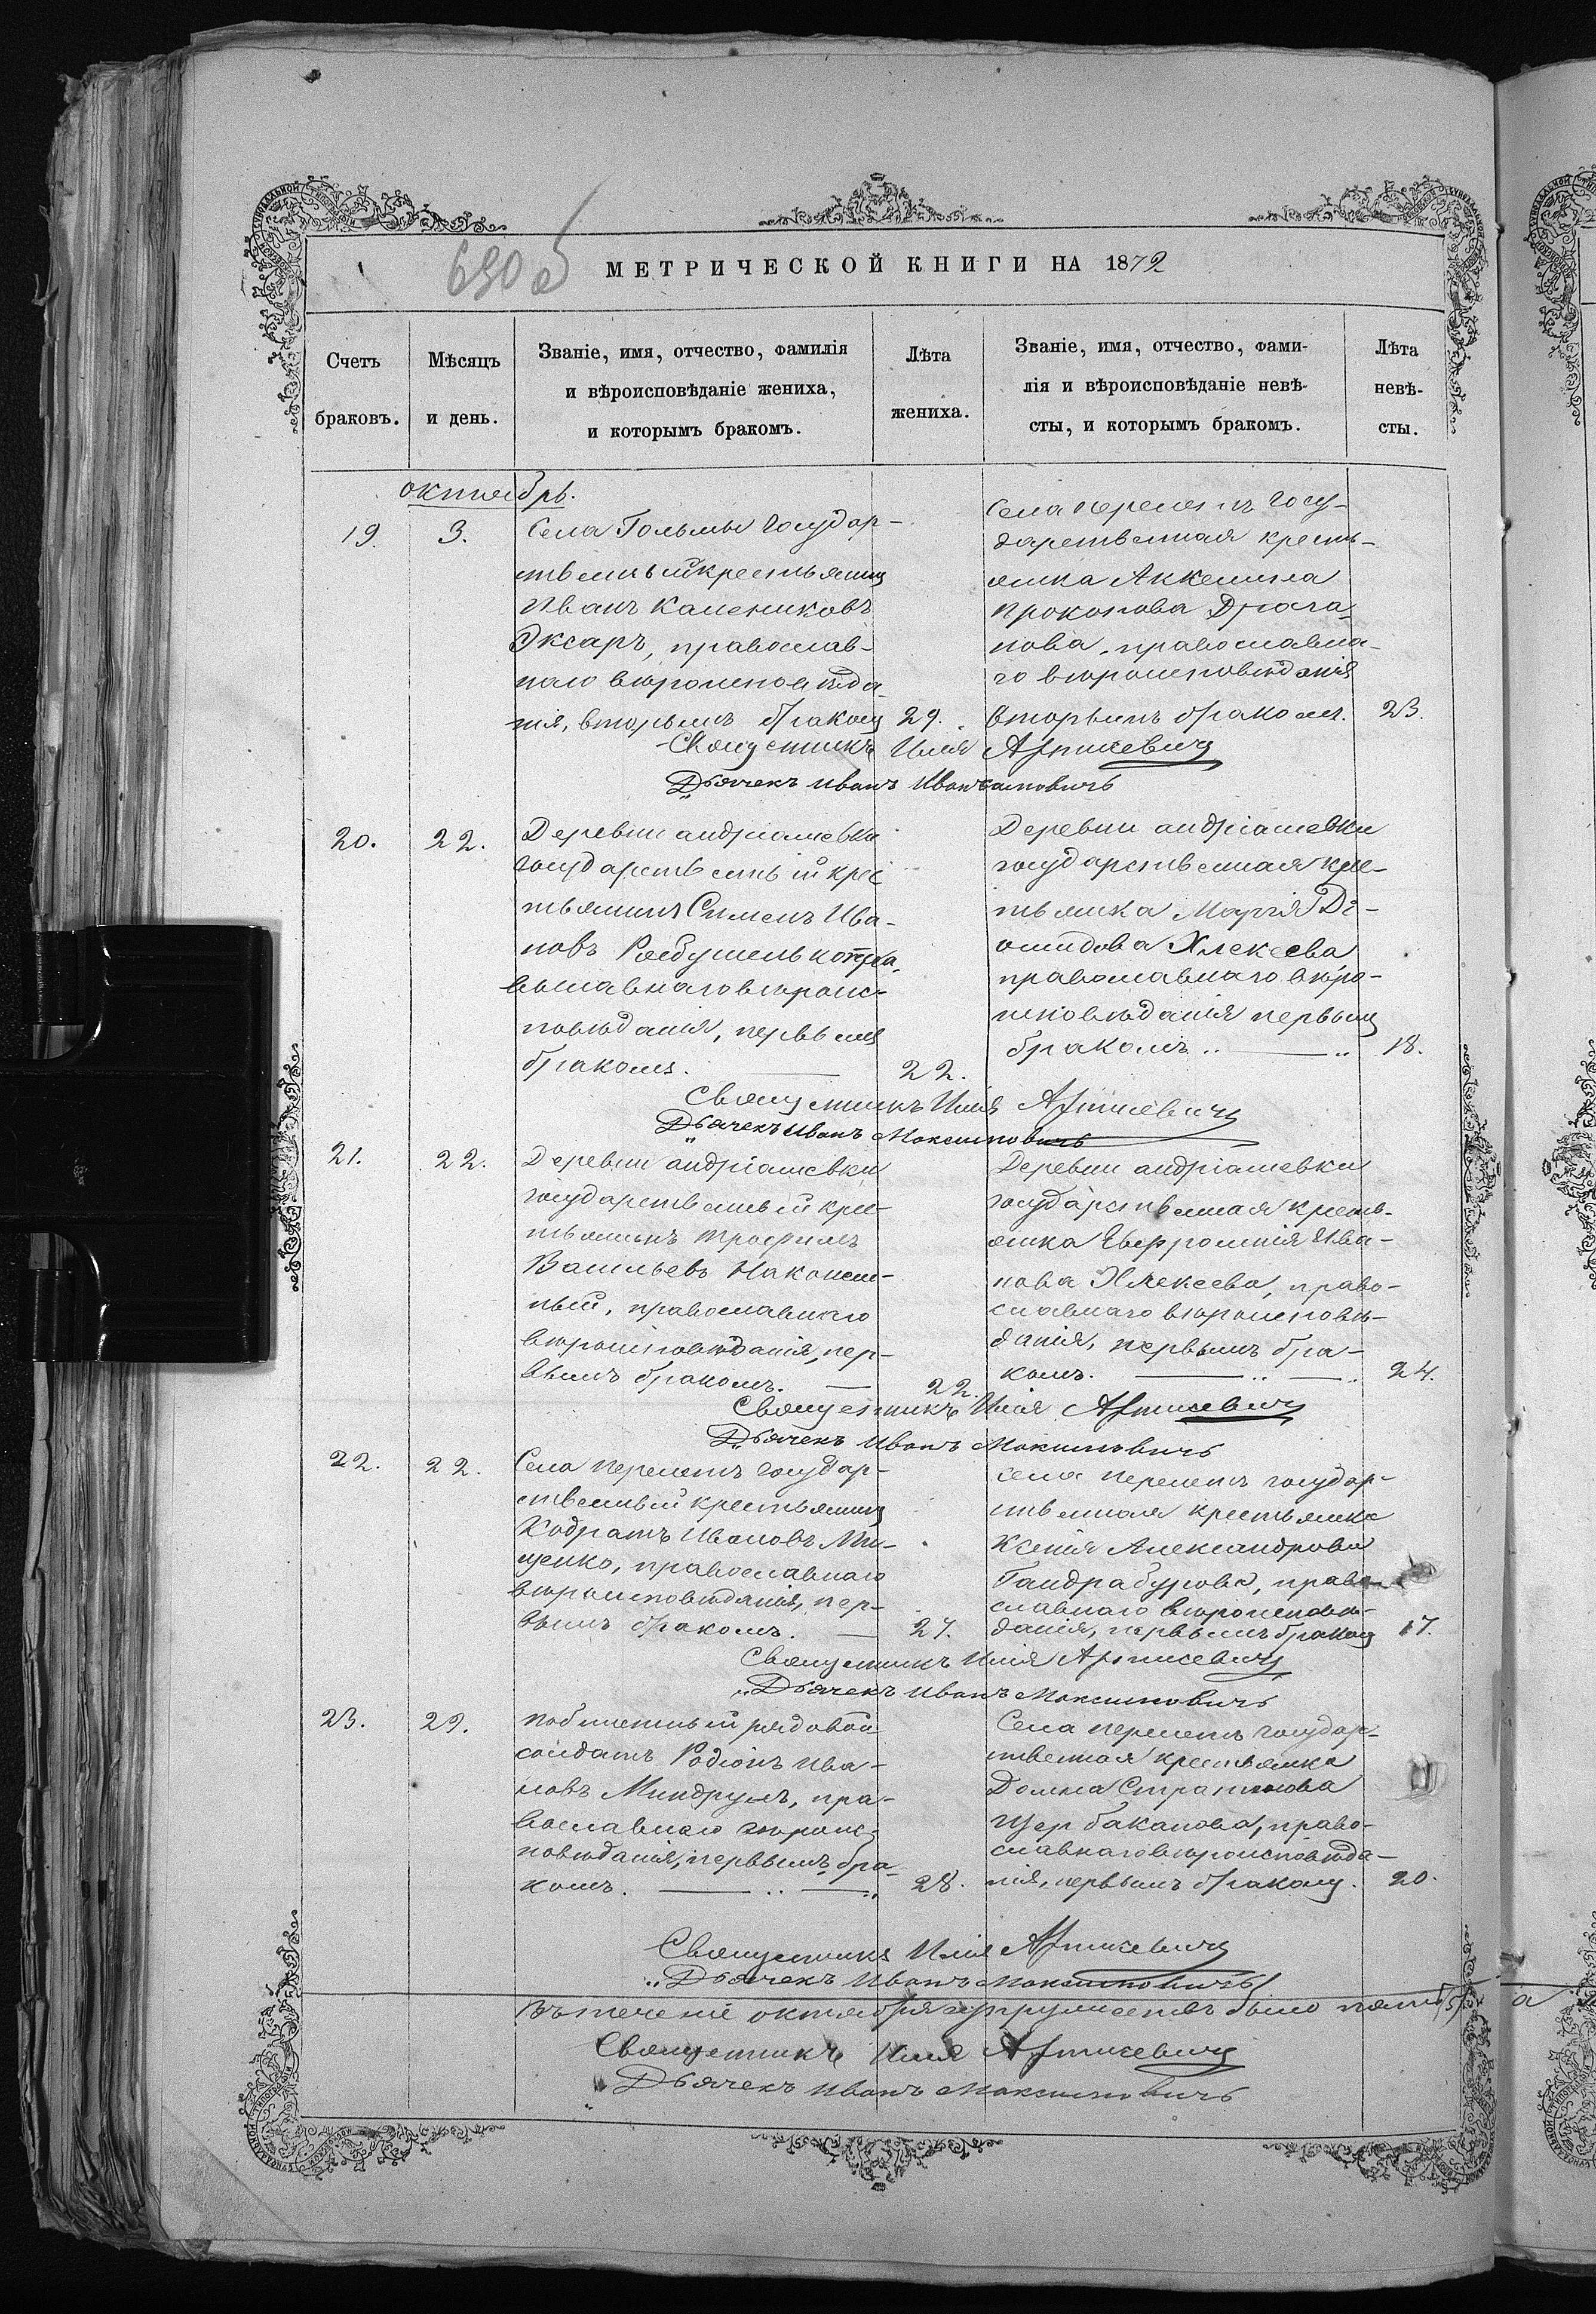 650 об
МЕТРИЧЕСКОЙ КНИГИ НА 1872
Счетъ браковъ.
Мѣсяцъ и день.
Званіе, имя, отчество, фамилія
и вѣроисповѣданіе жениха,
и которымъ бракомъ.
Лѣта жениха.
Званіе, имя, отчество, фами-
лія и вѣроисповѣданіе невѣ-
сты, и которымъ бракомъ.
Лѣта невѣ-
сты.
октябрь.
19. 3.
Села Гольмы государ-
ственный крестьянинъ
Иванъ Калениковъ
Эксаръ, православ-
наго вѣроисповѣда-
нія, вторымъ бракомъ 29.
Села Перелетъ госу-
дарственная кресть-
янка Аккелина
Прокопова Драга-
нова, православна-
го вѣроисповѣданія
вторымъ бракомъ. 23.
Священникъ Илія
Дьячекъ Иванъ
20. 22.
Деревни андріашевки
государственный крес
тьянинъ Симеонъ Ива-
новъ пра
вославнаго вѣроис-
повѣданія, первымъ
бракомъ. 22.
Деревни андріашевки
государственная кре-
тьянка Марія Ді-
омидова Алексева
православнаго вѣро-
исповѣданія первымъ
бракомъ 18.
Священникъ Илія
Дьячекъ Иванъ Максимовичъ
21. 22.
Деревни андріашевки
государственный кре-
тьянинъ Трофимъ
Васильевъ Наконеч-
ный, православнаго
вѣроисповѣданія, пер-
вымъ бракомъ. 22.
Деревни андріашевки
государственная кресть-
янка Евфросинія Ива-
нова Алексева, право-
славнаго вѣроисповѣ-
данія, первымъ бра-
комъ. 24.
Священникъ Илія
Дьячекъ Иванъ Максимовичъ
22. 22.
Села Перелетъ государ-
ственный крестьянинъ
Кодратъ Ивановъ Ми-
щенко, православнаго
вѣроисповѣданія, пер-
вымъ бракомъ. 27.
Села Перелетъ государ-
твенная крестьянка
Ксенія Александрова
Гандрабурова, право-
славнаго вѣроисповѣ-
данія, первымъ бракомъ 17.
Священникъ Илія
Дьячекъ Иванъ Максимовичъ
23. 29.
рядовой
солдатъ Родіонъ Ива-
новъ Миндрулъ, пра-
вославнаго вѣроис-
повѣданія, первымъ бра-
комъ. 28.
Села Перелетъ государ-
твенная крестьянка
Домна
Щербаканова, право-
славнаго вѣроисповѣда-
нія, первымъ бракомъ. 20.
Священникъ Илія
Дьячекъ Иванъ Максимовичъ
Въ теченіе октября супружествъ было пять (5)
Священникъ Илія
Дьячекъ Иванъ Максимовичъ